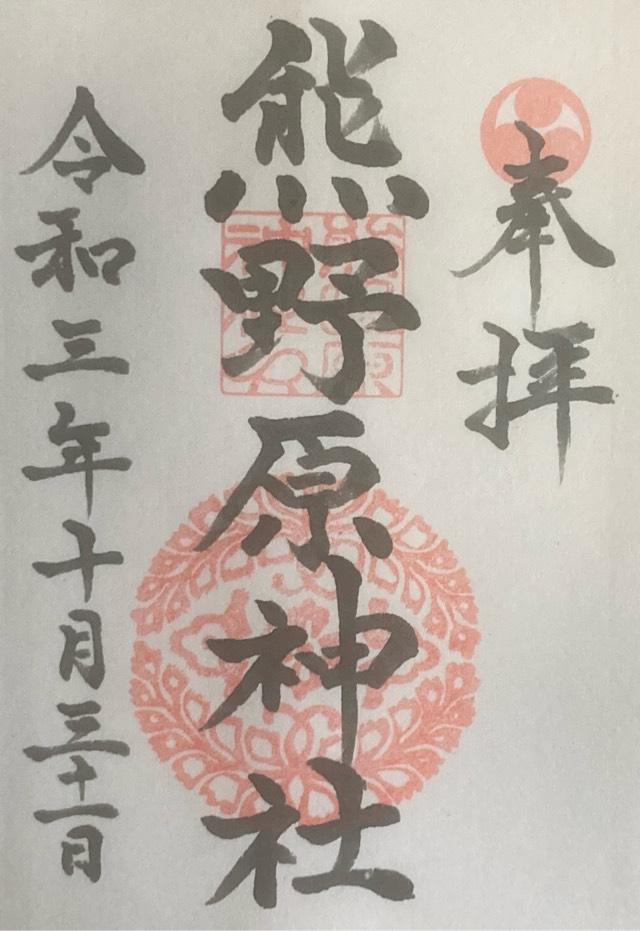 奉拝
熊野原神社
令和三年十月三十一日